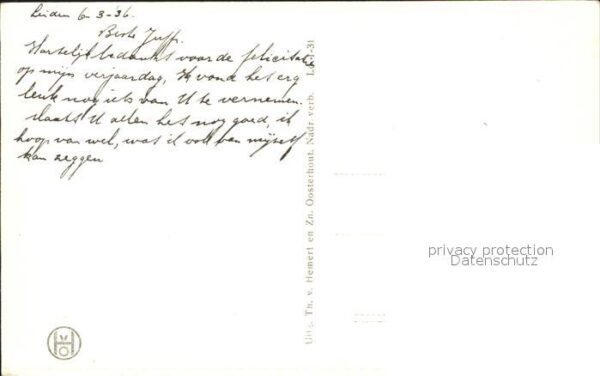 Leiden 6-3-'36.
Beste Juffr.
Hartelijk bedankt voor de felicitatie
op mijn verjaardag, Ik vond het erg
leuk nog iets van U te vernemen.
U allen het nog goed, ik
hoop van wel, wat ik ook van mijzelf
kan zeggen
Uitg. Th. v. Hemert en Zn. Oosterhout. Nadr. verb.
privacy protection
Datenschutz